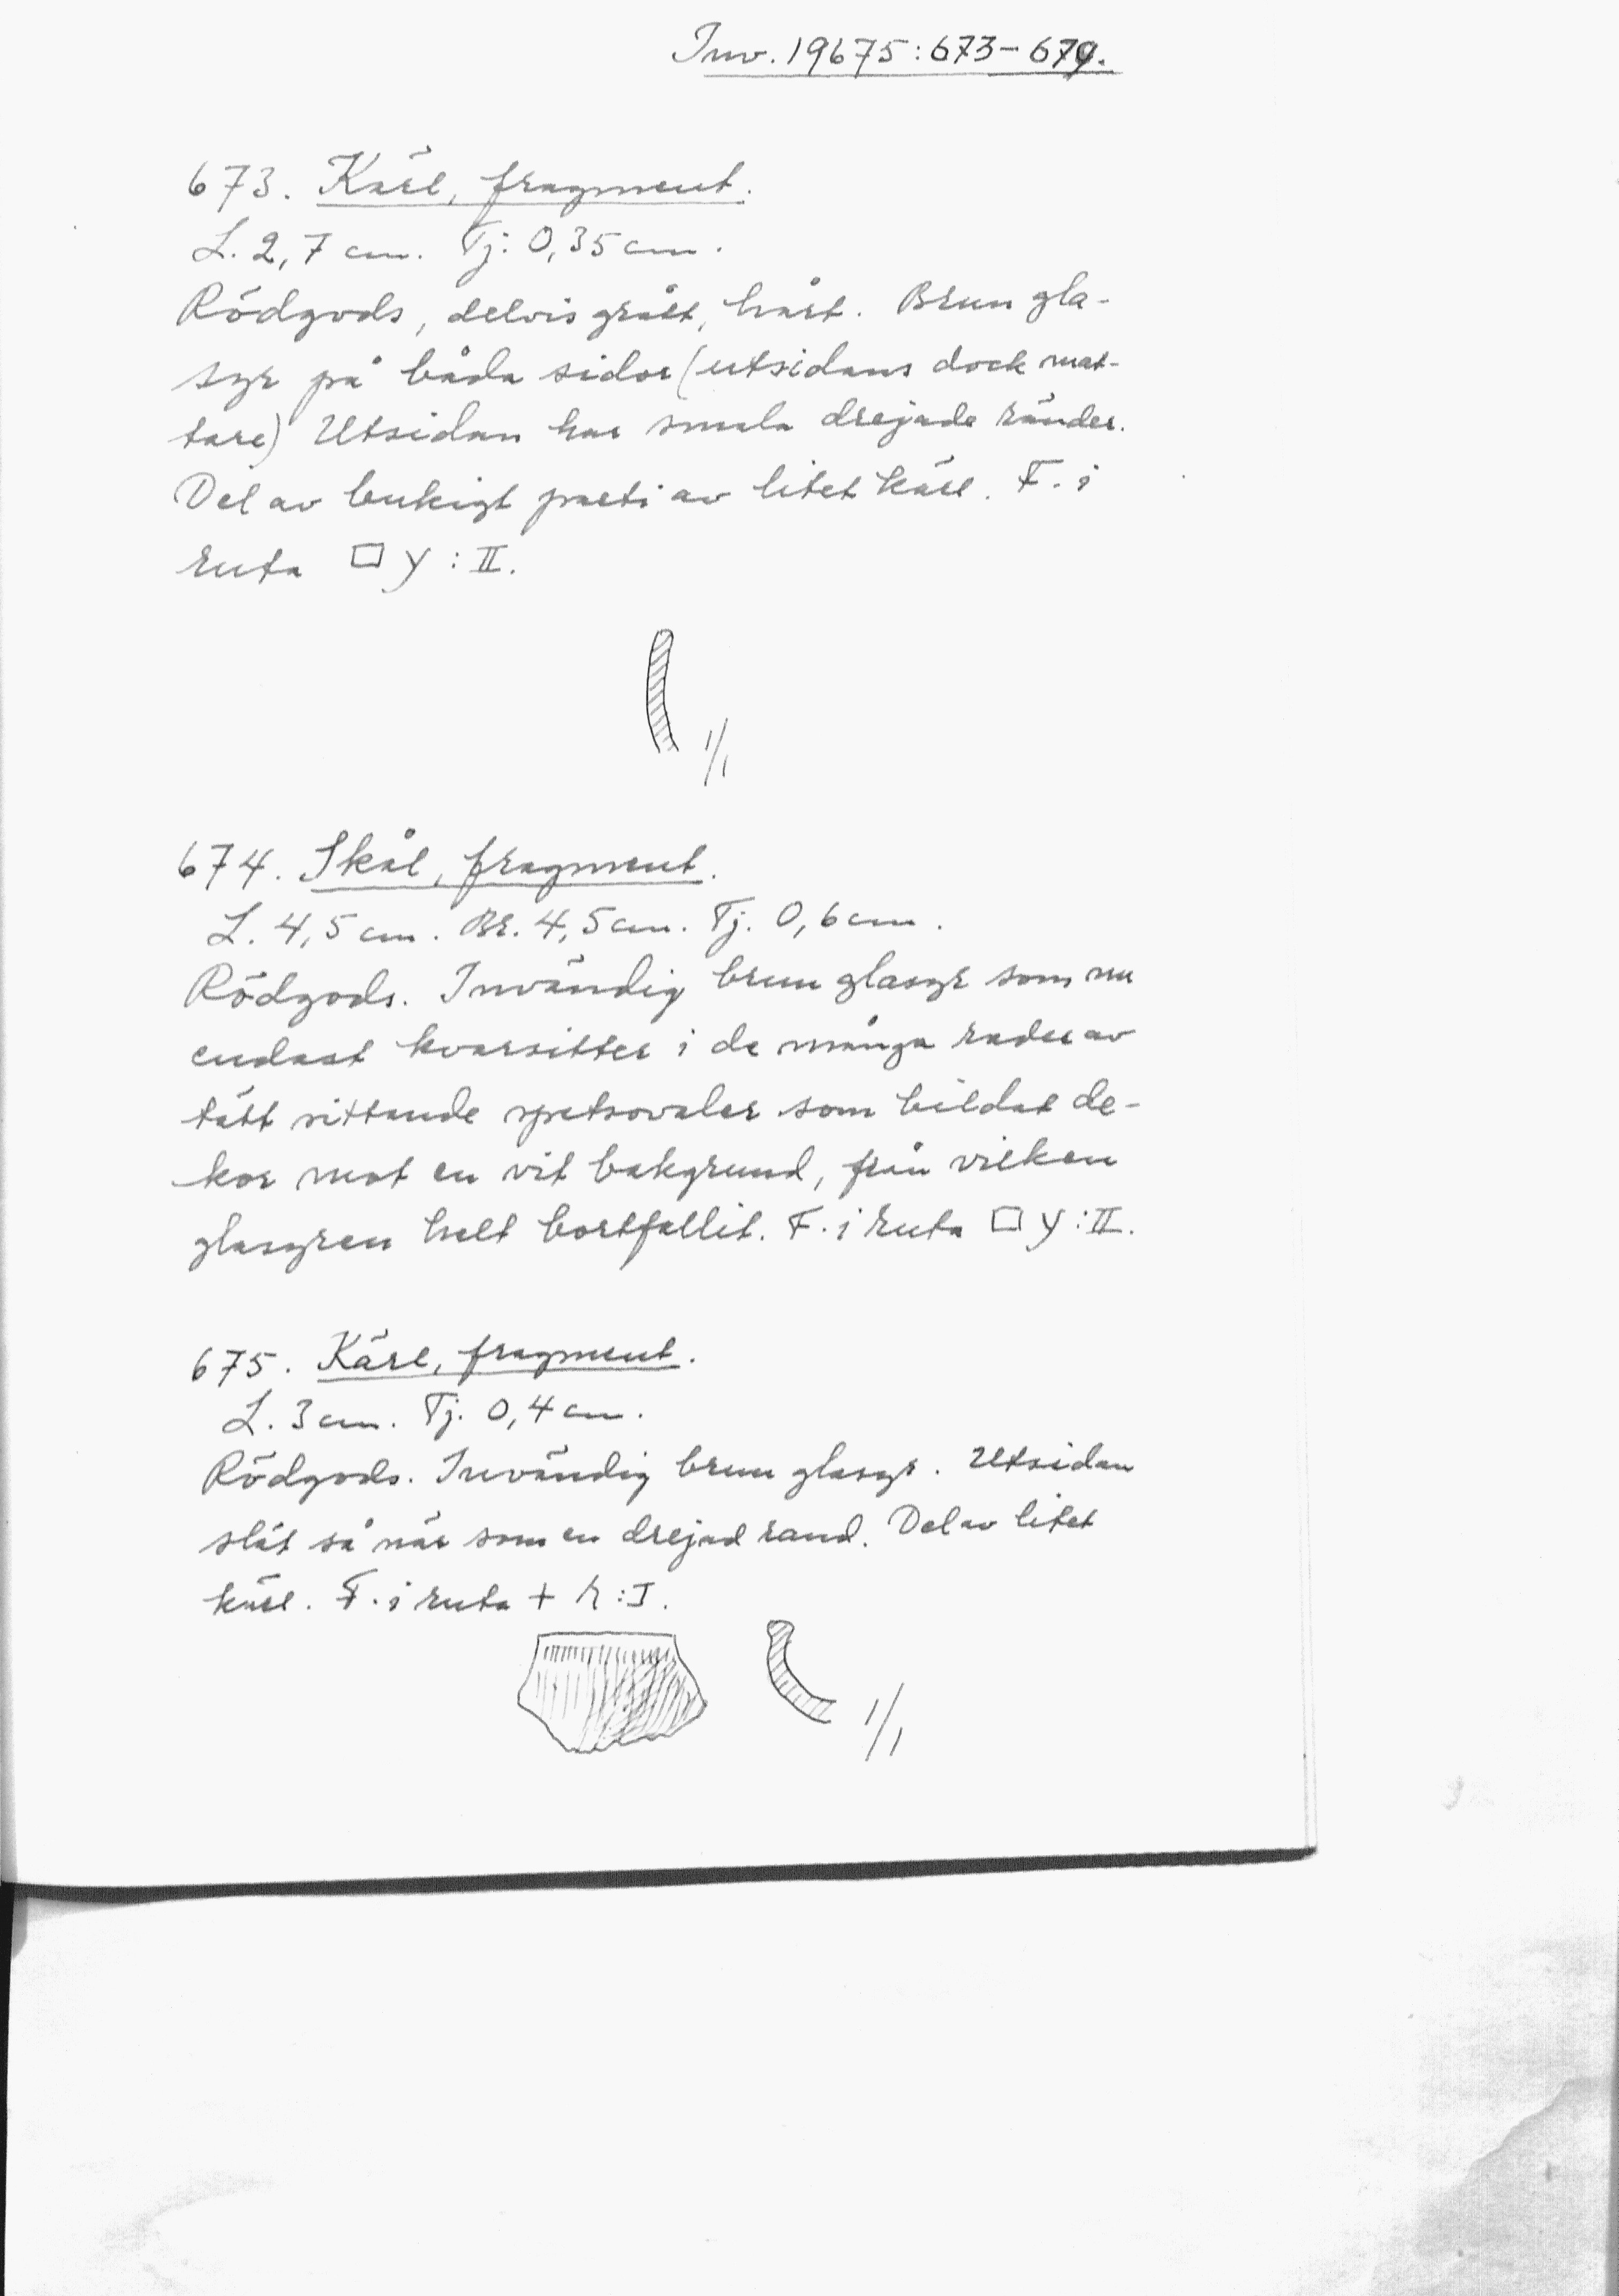 Inv. 19675:673-679.
673. Kärl, fragment.
L. 2,7 cm. Tj: 0,35 cm.
Rödgods, delvis grått, hårt. Brun gla-
syr på båda sidor (utsidans dock mat-
tare) Utsidan har smala drejade ränder.
Del av bukigt parti av litet kärl. F. i
ruta □ y : II.
1/1
674. Skål, fragment.
L. 4,5 cm. Br. 4,5 cm. Tj. 0,6 cm.
Rödgods. Invändig brun glasyr som nu
endast kvarsitter i de många rader av
tätt sittande spetsovaler som bildat de-
kor mot en vit bakgrund, från vilken
glasyren helt bortfallit. F. i ruta □ y : II.
675. Kärl, fragment.
L. 3 cm. Tj. 0,4 cm.
Rödgods. Invändig brun glasyr. Utsidan
slät så när som en drejad rand. Del av litet
kärl. F. i ruta + :I.
1/1